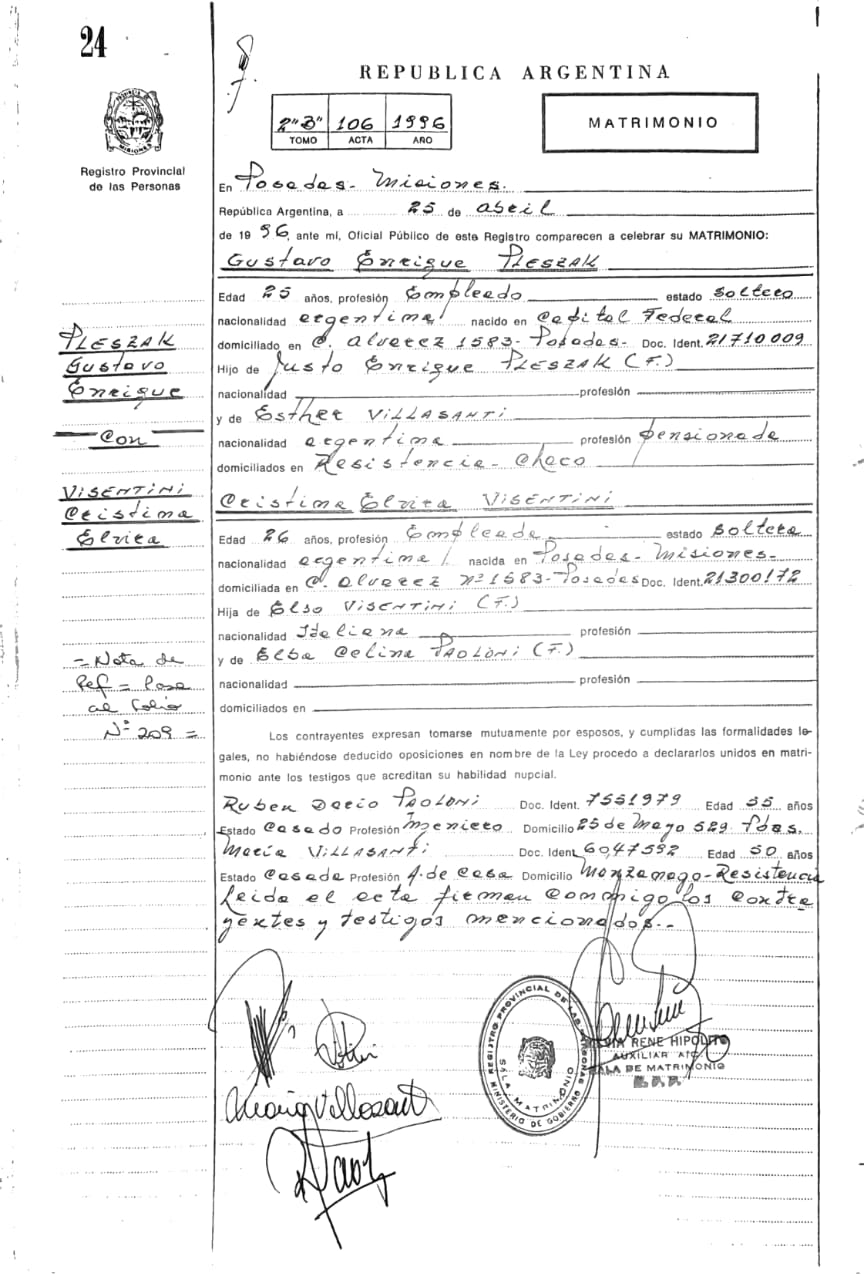 24
REPUBLICA ARGENTINA
2"B" 106 1996
TOMO ACTA AÑO
MATRIMONIO
Registro Provincial
de las Personas
En Posadas - Misiones.
República Argentina, a 25 de abril
de 1996, ante mí, Oficial Público de este Registro comparecen a celebrar su MATRIMONIO:
Gustavo Enrique PLESZAK
Edad 25 años, profesión Empleado estado soltero
nacionalidad argentina nacido en Capital Federal
domiciliado en C. Alvarez 1583 - Posadas - Doc. Ident. 21710009
Hijo de Justo Enrique PLESZAK (F.)
nacionalidad profesión
y de Esther VILLASANTI
nacionalidad argentina profesión pensionada
domiciliados en Resistencia - Chaco
Cristina Elvira VISENTINI
Edad 26 años, profesión Empleada estado soltera
nacionalidad argentina nacida en Posadas - Misiones -
domiciliada en C. Alvarez Nº 1583 - Posadas Doc. Ident. 21300172
Hija de Elso VISENTINI (F.)
nacionalidad Italiana profesión
y de Elba Celina PAOLONI (F.)
nacionalidad profesión
domiciliados en
PLESZAK
Gustavo
Enrique
Con
VISENTINI
Cristina
Elvira
- Nota de
Ref = Pasa
al Folio
Nº 209 =
Los contrayentes expresan tomarse mutuamente por esposos, y cumplidas las formalidades le-
gales, no habiéndose deducido oposiciones en nombre de la Ley procedo a declararlos unidos en matri-
monio ante los testigos que acreditan su habilidad nupcial.
Ruben Dario PAOLONI Doc. Ident. 7551979 Edad 55 años
Estado Casado Profesión Ingeniero Domicilio 25 de Mayo 529 Pdas.
María VILLASANTI Doc. Ident. 6047592 Edad 50 años
Estado Casada Profesión A. de Casa Domicilio - Resistencia
Leída el acta firman conmigo los contra
yentes y testigos mencionados. -
María Villasanti
REGISTRO PROVINCIAL DE LAS PERSONAS
SALA MATRIMONIO
MINISTERIO DE GOBIERNO
RENE HIPOLITO
AUXILIAR
SALA DE MATRIMONIO